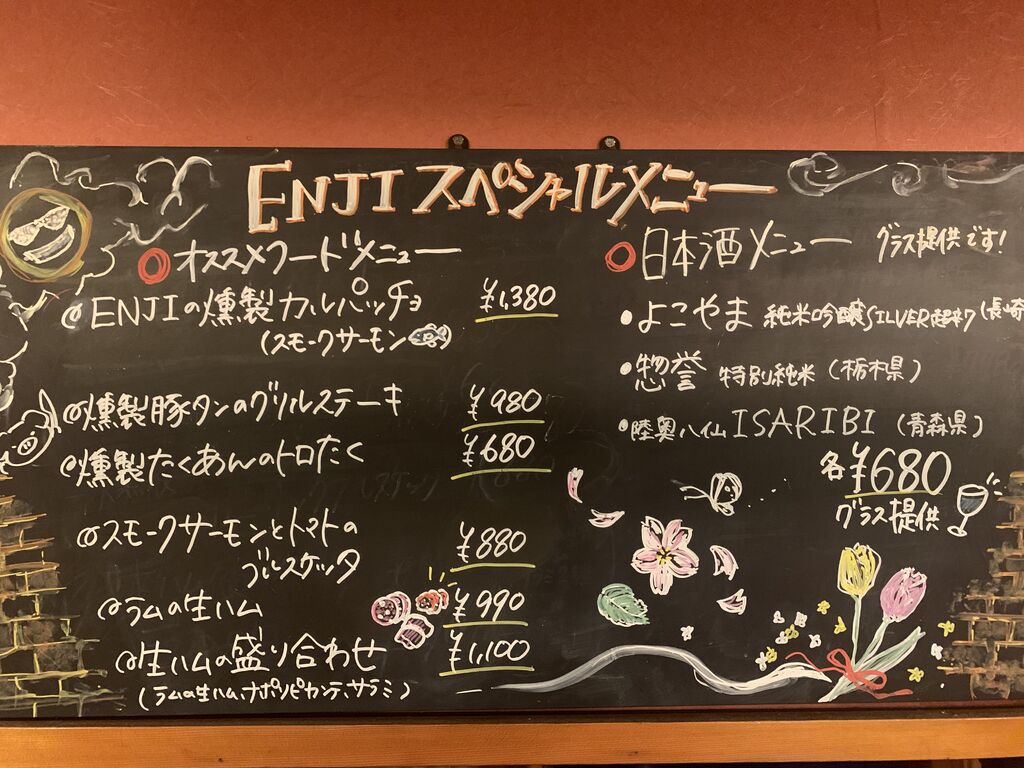 ENJI スペシャルメニュー
オススメフードメニュー
ENJIの燻製カルパッチョ ¥1,380
(スモークサーモン
燻製豚タンのグリルステーキ ¥980
燻製たくあんのトロたく ¥680
スモークサーモンとトマトの
ブルスケッタ ¥880
ラムの生ハム ¥990
生ハムの盛り合わせ ¥1,100
(ラムの生ハム、ナポリピカンテ、サラミ)
日本酒メニュー グラス提供です!
・よこやま 純米吟醸SILVER超辛7 (長崎
・惣誉 特別純米 (栃木県)
・陸奥八仙 ISARIBI (青森県)
各¥680
グラス提供